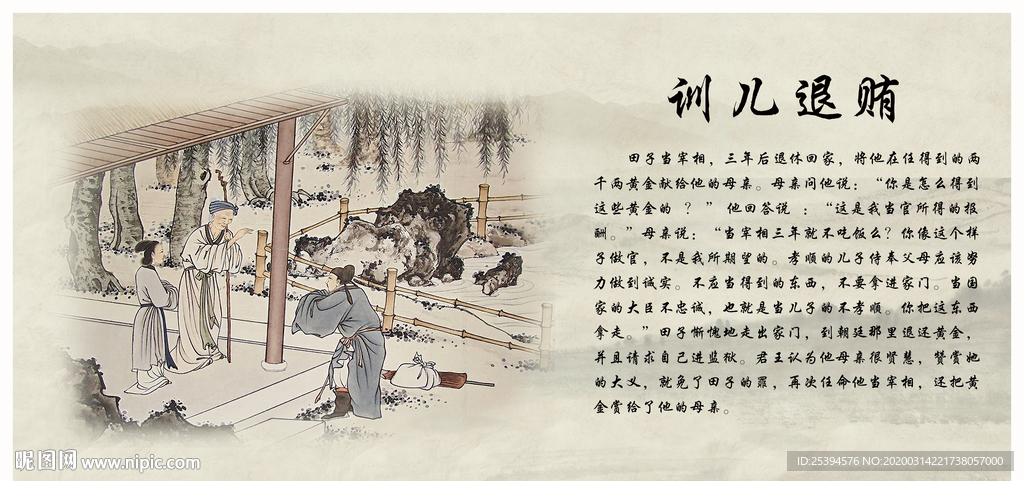 训儿退贿
田子当宰相，三年后退休回家，将他在任得到的两
千两黄金献给他的母亲。母亲问他说：“你是怎么得到
这些黄金的 ？ ” 他回答说 ：“这是我当官所得的报
酬。”母亲说：“当宰相三年就不吃饭么？你像这个样
子做官，不是我所期望的。孝顺的儿子侍奉父母应该努
力做到诚实。不应当得到的东西，不要拿进家门。当国
家的大臣不忠诚，也就是当儿子的不孝顺。你把这东西
拿走。”田子惭愧地走出家门，到朝廷那里退还黄金，
并且请求自己进监狱。君王认为他母亲很贤慧，赞赏她
的大义，就免了田子的罪，再次任命他当宰相，还把黄
金赏给了他的母亲。
昵图网 www.nipic.com
ID:25394576 NO:20200314221738057000